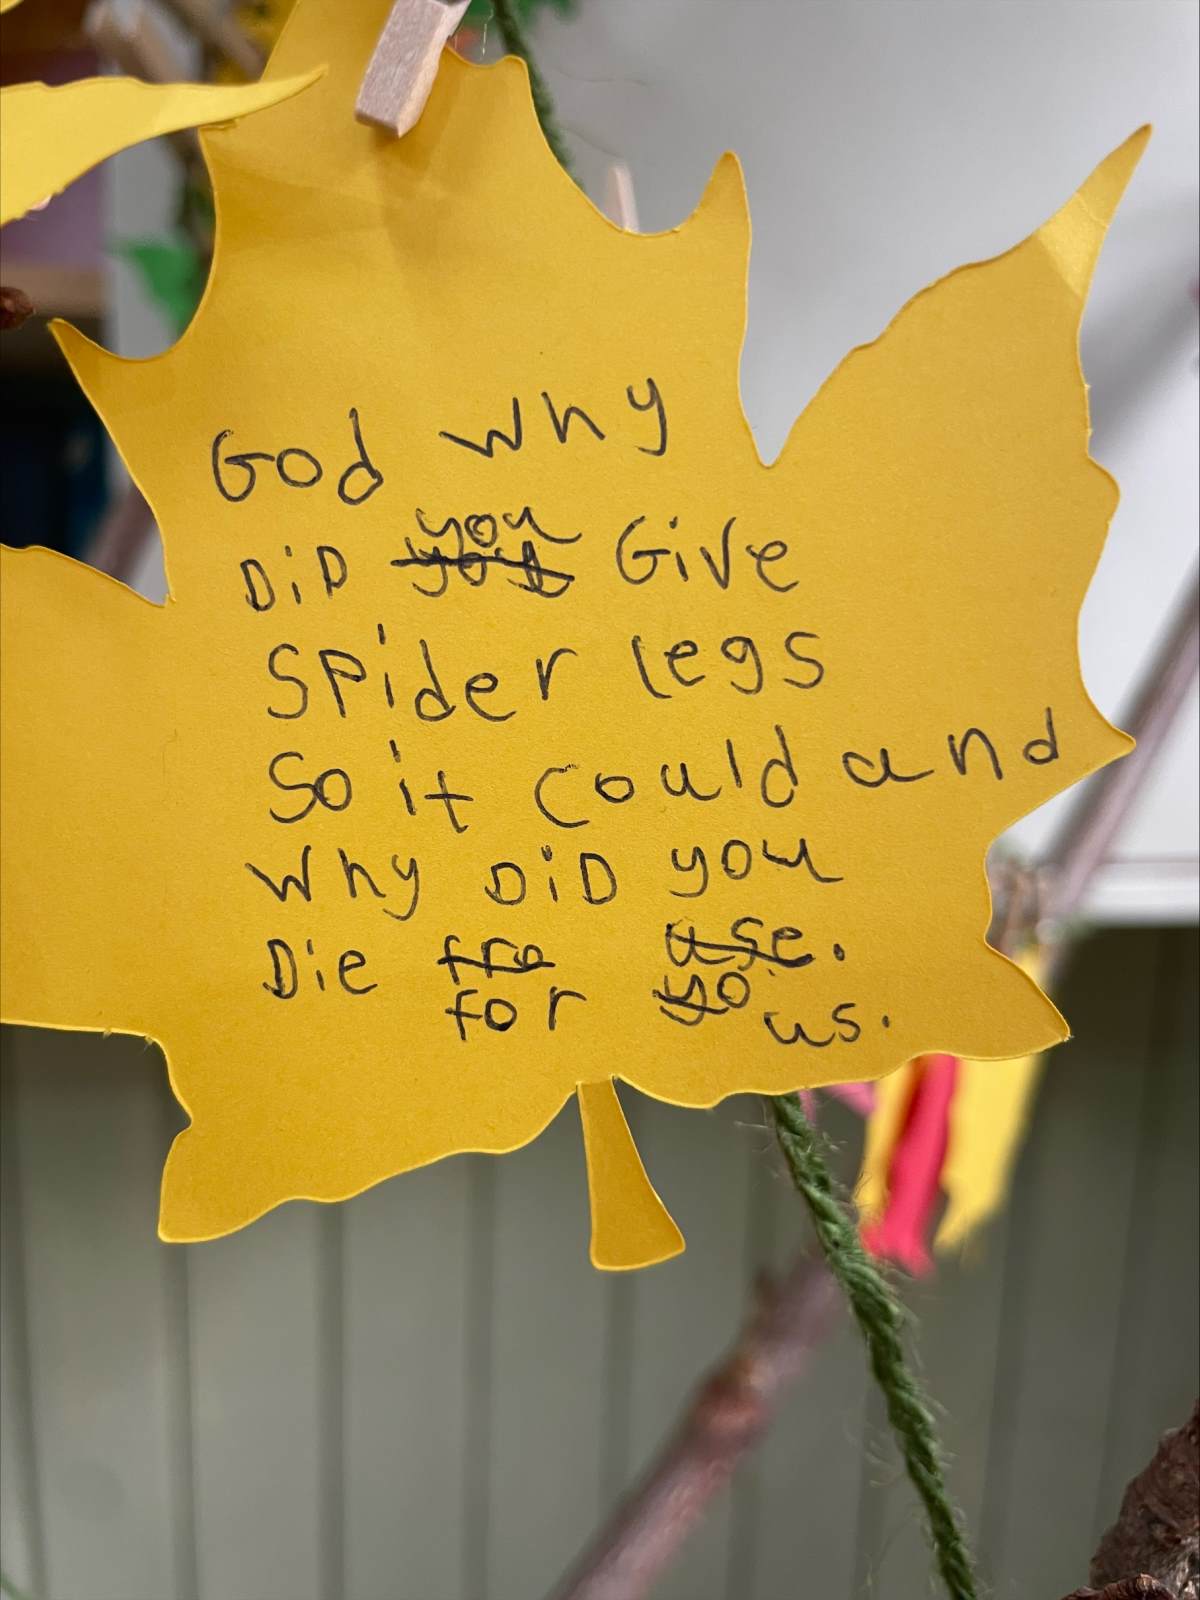 God why
DiD you Give
Spider legs
So it could and
Why DiD you
Die for us.